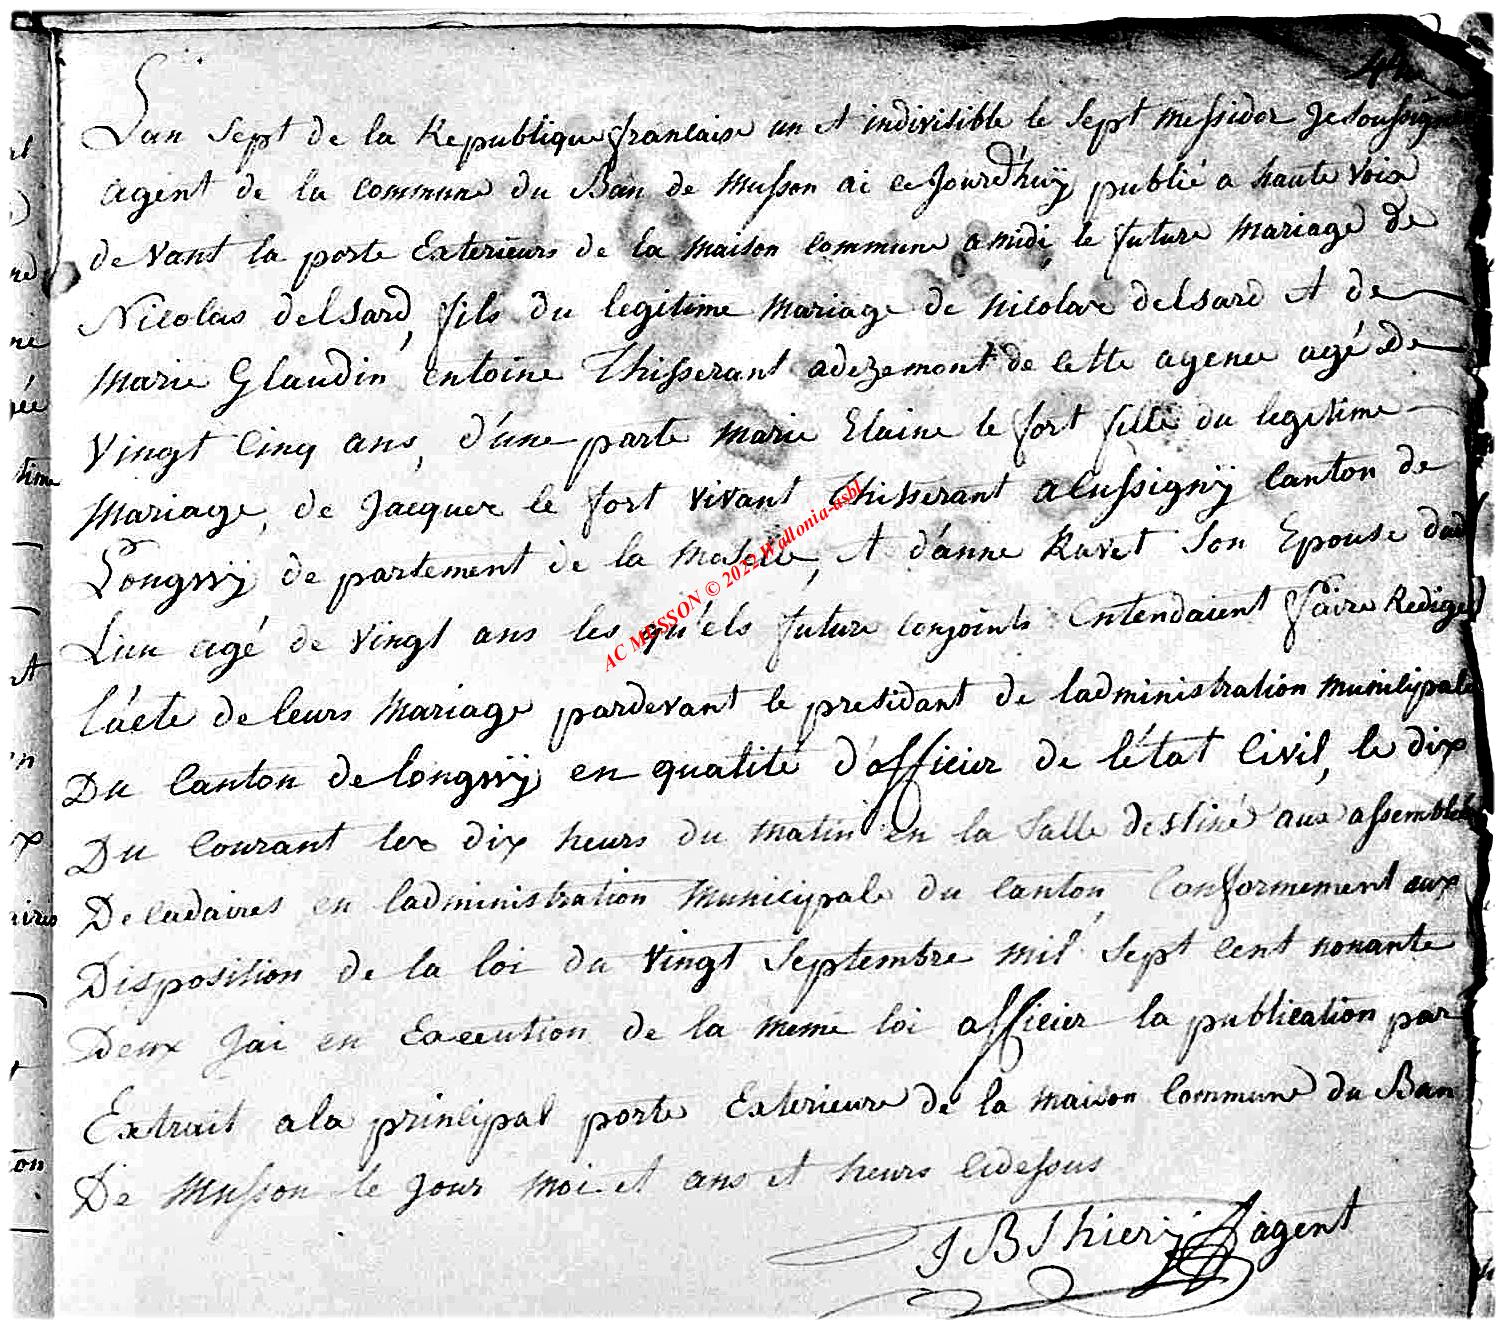 44
Lan Sept de la Republique francaise un et indivisible le Sept Messidor Je soussigné
agent de la commune du Ban de Musson ai ce Jourd'huÿ publié a haute voix
de vant la porte Exterieurs de la maison commune a midi le future Mariage de
Nicolas delsard, fils du legitime mariage de nicolas delsard et de
Marie Glaudin entoine Thisserant a dezemont de cette agence agé de
Vingt Cinq ans, d'une parte marie Elaine le fort fille du legetime
Mariage, de Jacque le fort vivant Thisserant a Cussignÿ Canton de
Longwÿ de partement de la Moselle, et d'anne Ravet Son Epouse dud
Lieu agé de vingt ans les qu'els future conjoints Entendaient faire Rediger
l'acte de leurs Mariage pardevant le presidant de ladministration municipale
Du Canton de longwÿ en qualité d'officier de l'état Civil, le dix
Du Courant les dix heurs du matin en la Salle destiné aux assemblés
Decadaires en ladministration Municipale du Canton, Conformement aux
Disposition de la loi du Vingt Septembre mil Sept cent nonante
Deux Jai en Execution de la meme loi afficier la publication par
Extrait a la principal porte Exterieure de la maison Commune du Ban
De Musson le Jour moi et ans et heurs cidessus
J B Thiery agent
AC MUSSON © 2022 Wallonia-asbl